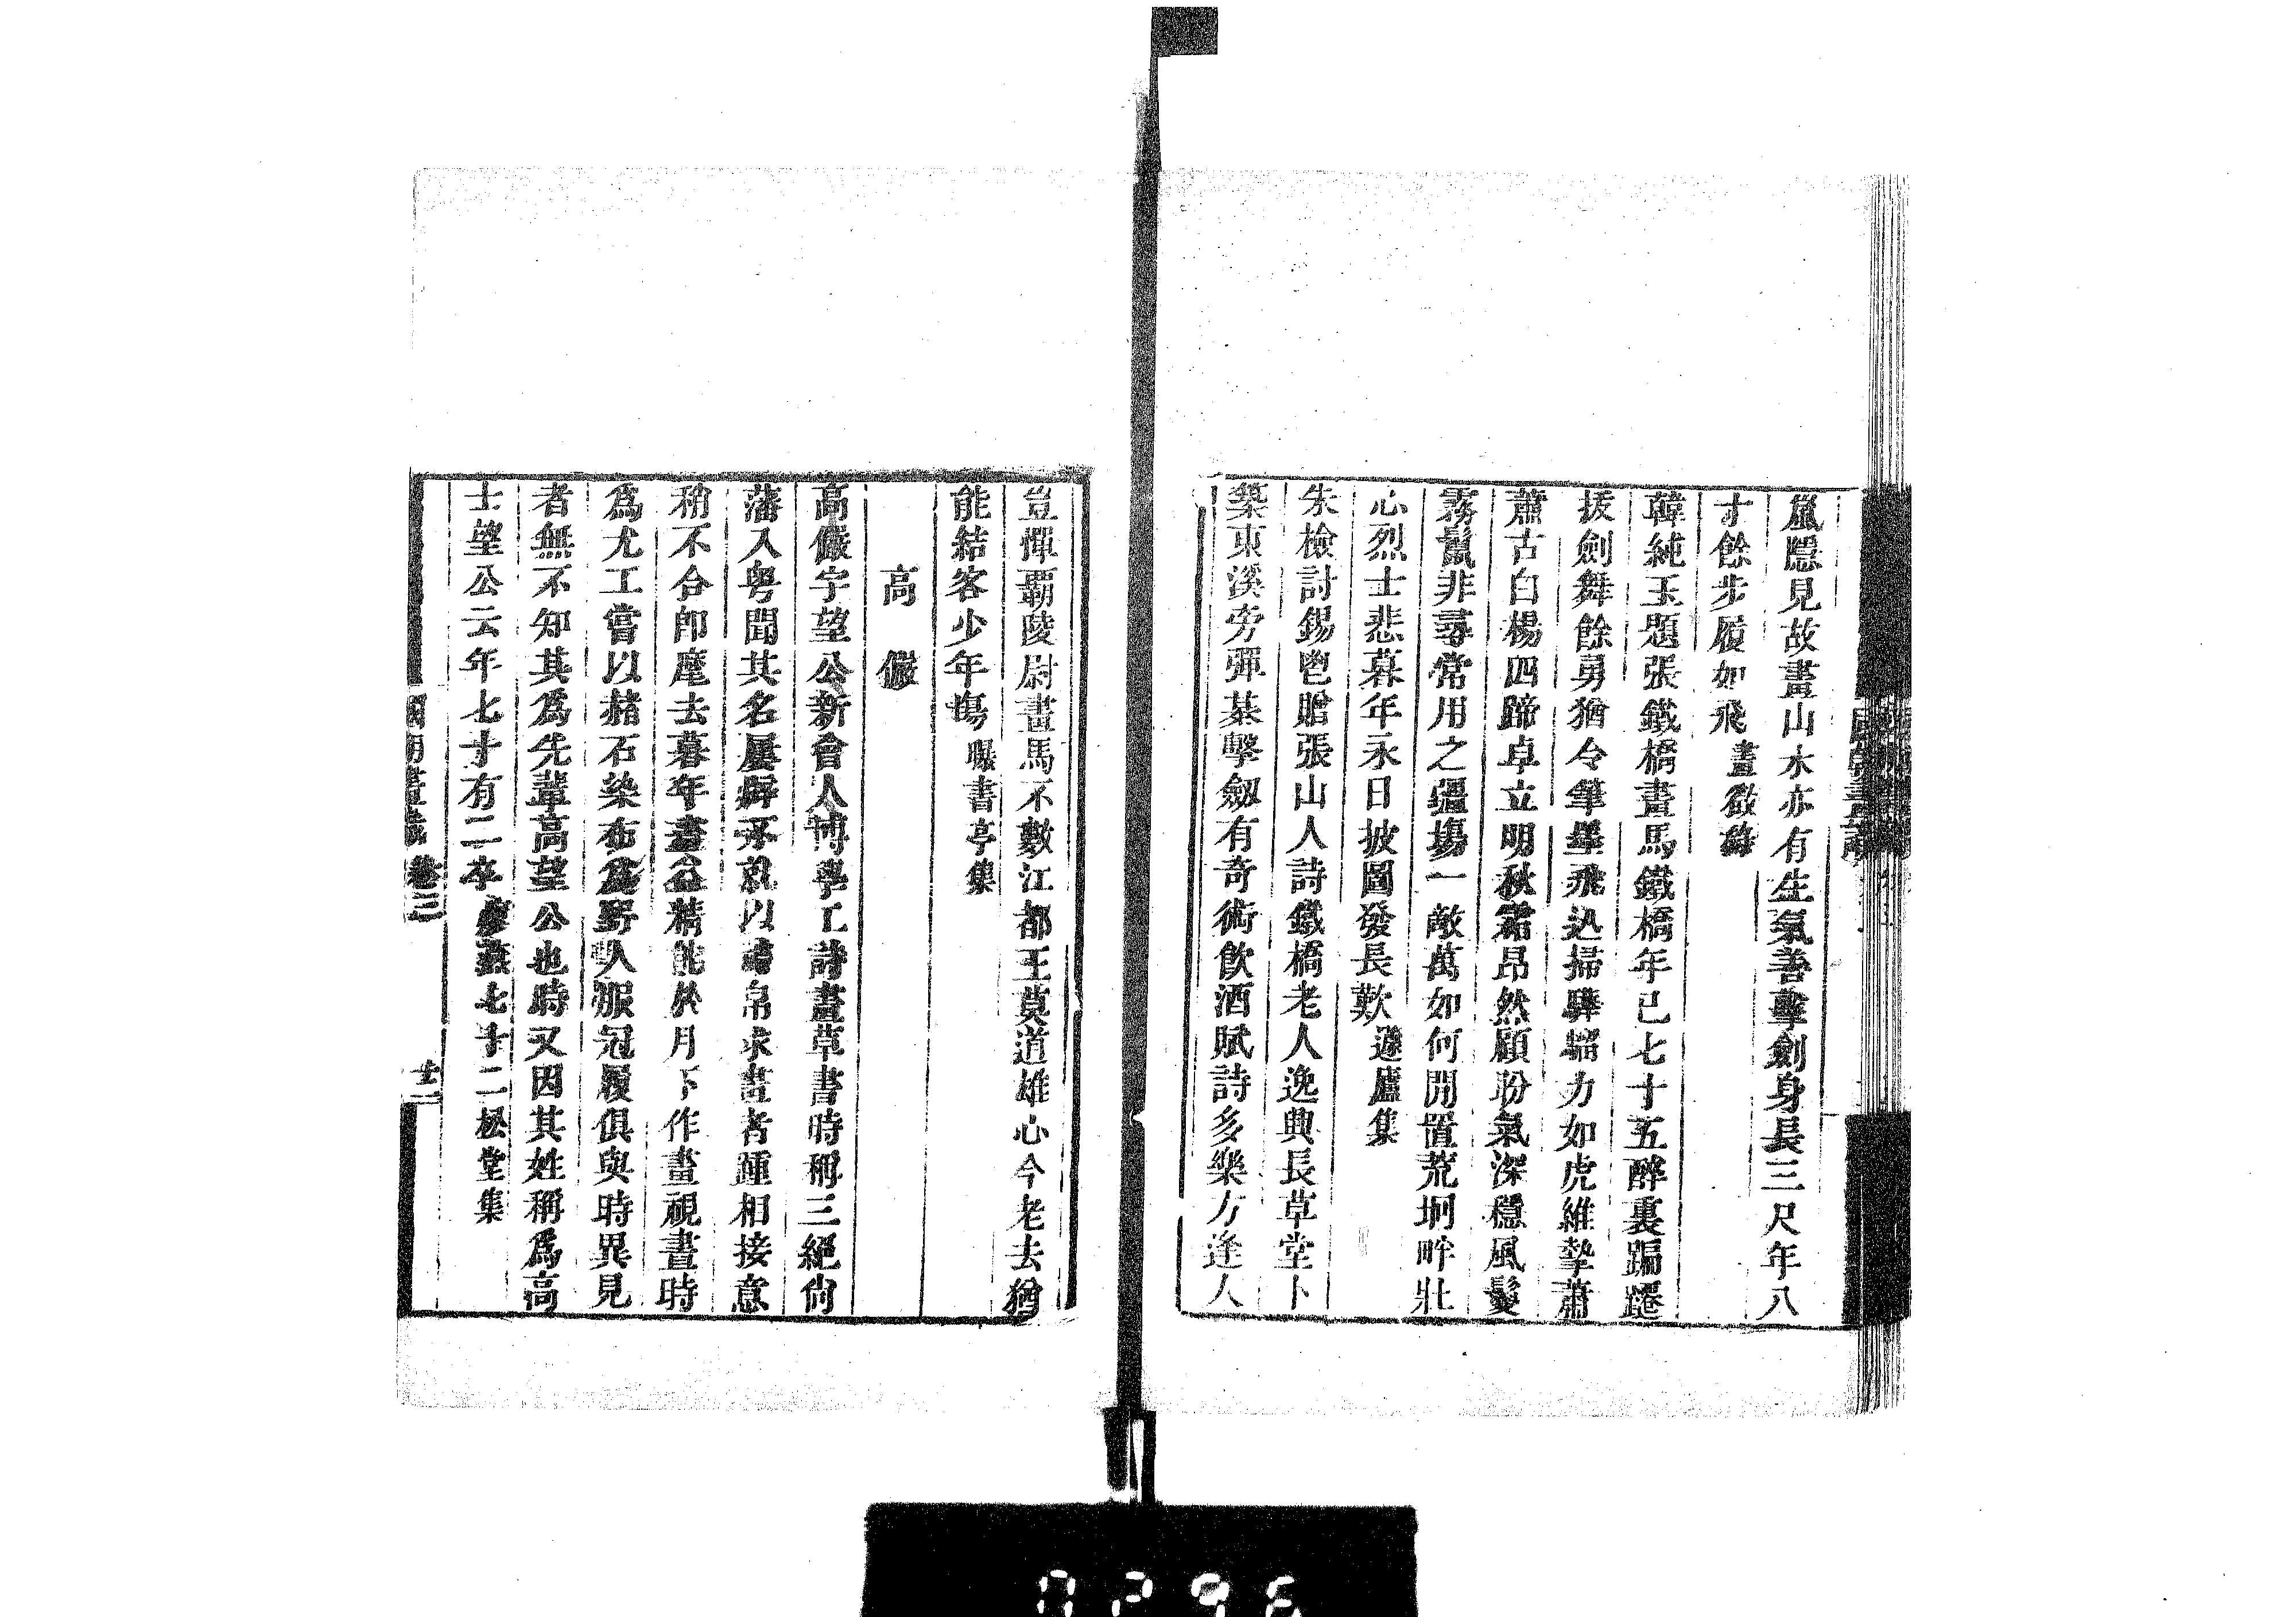 嵐隱見故畫山水亦有生氣善擊劍身長三尺年八
十餘步履如飛畫徵錄
韓純玉題張鐵橋畫馬鐵橋年已七十五醉裏蹁躚
拔劍舞餘勇猶令筆墨飛迅掃驊騮力如虎維摯蕭
蕭古白楊四蹄卓立明秋霜昂然顧盼氣深穩風鬉
霧鬣非尋常用之疆場一敵萬如何閒置荒坰畔壯
心烈士悲暮年永日披圖發長歎蘧廬集
朱檢討錫鬯贈張山人詩鐵橋老人逸興長草堂卜
築東溪旁彈棊擊劒有奇術飲酒賦詩多樂方逢人
豈憚覇陵尉畫馬不數江都王莫道雄心今老去猶
能結客少年塲曝書亭集
高儼
高儼字望公新會人博學工詩畫草書時稱三絕尙
藩入粵聞其名屢辟不就以 帛求畫者踵相接意
稍不合卽麾去暮年畫益精能於月下作畫視晝時
爲尤工嘗以赭石染布爲野人服冠履俱與時異見
者無不知其爲先輩高望公也時又因其姓稱爲高
士望公云年七十有二卒 燕七十二松堂集
國朝畫識 卷三 十二
國朝畫識
0296